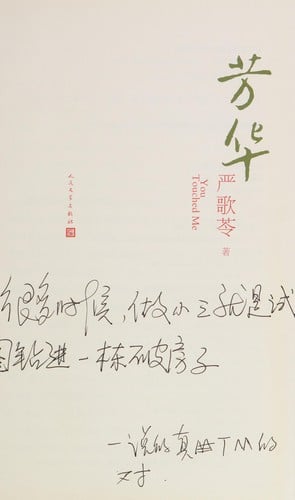 芳华
严歌苓 著
You
Touched Me
人民文学出版社
很多时候，做小三就是试
图钻进一栋破房子
一说的真TM的
对.